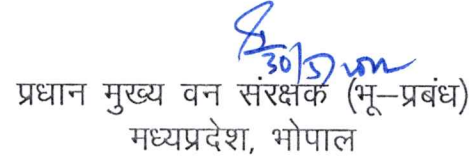 30/5/
प्रधान मुख्य वन संरक्षक (भू–प्रबंध)
मध्यप्रदेश, भोपाल